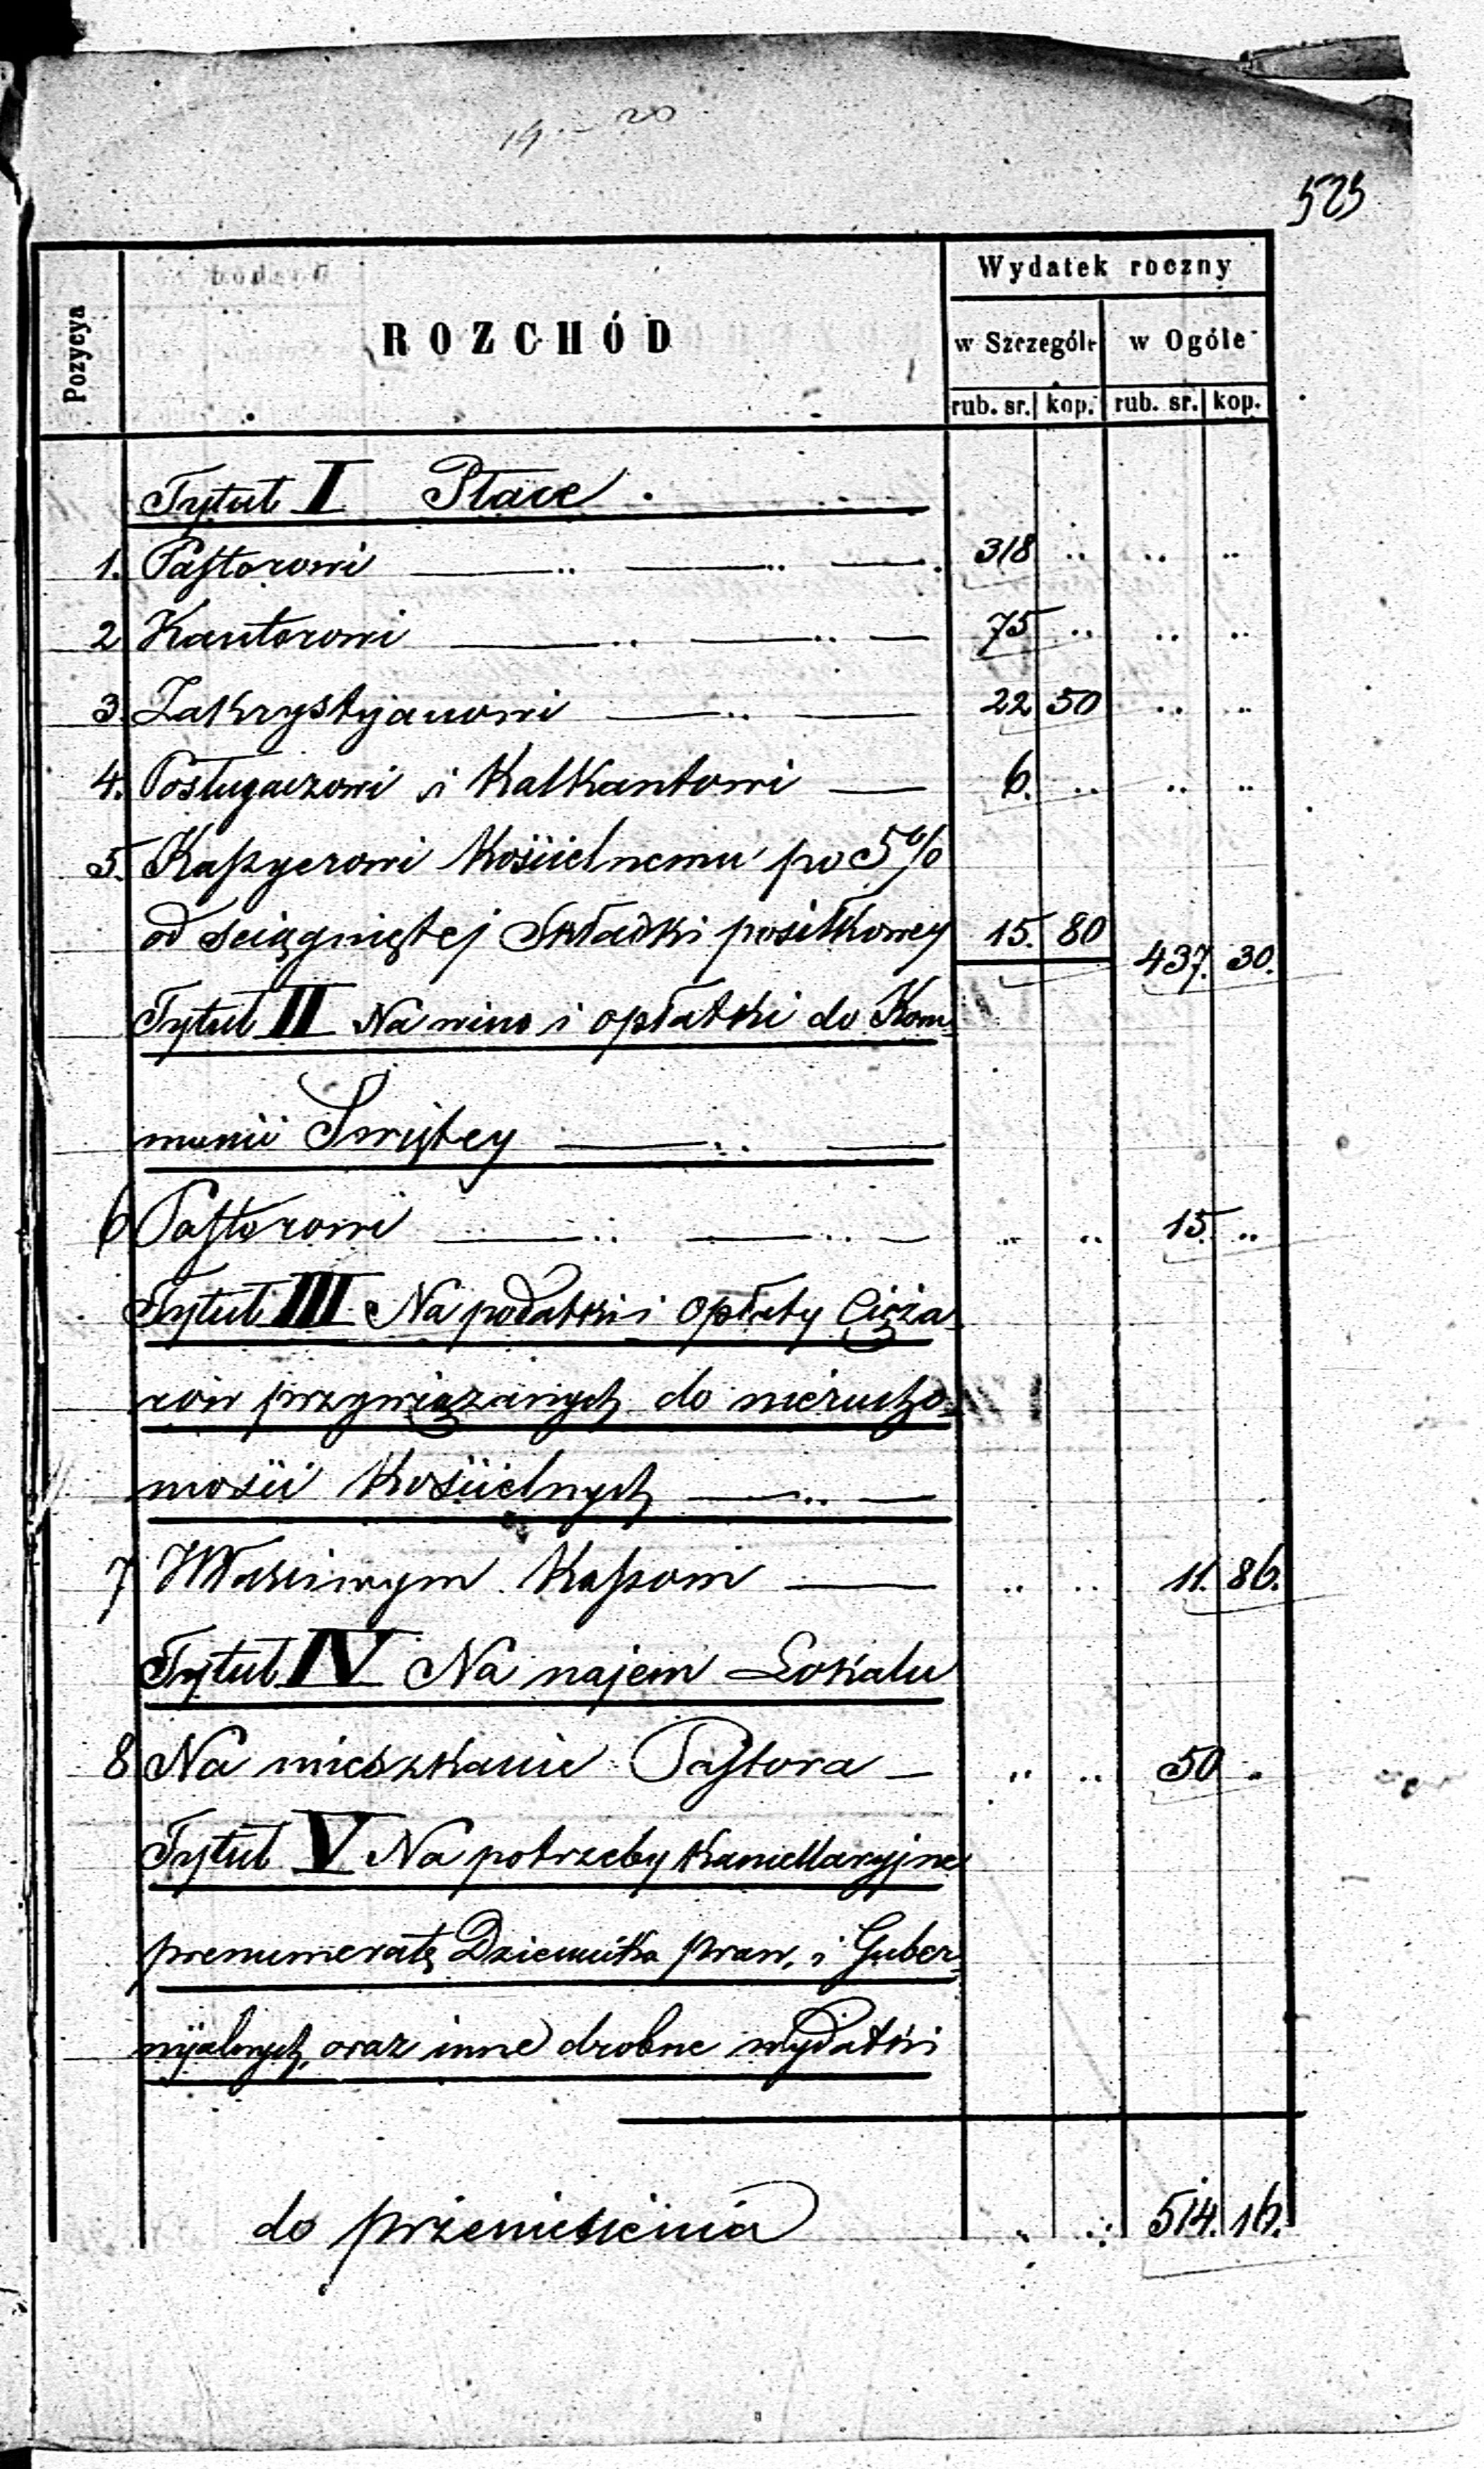 19 – 20
525
Pozycya
ROZCHÓD
Wydatek roczny
w Szczególe
w Ogóle
rub. sr. kop. rub. sr. kop.
Tytuł I Płace
1. Pastorowi 318 .. .. ..
2 Kantorowi 75 .. .. ..
3. Zakrystyanowi 22 50 .. ..
4. Posługaczowi i Kalkantowi 6. .. .. ..
5. Kassyerowi Kościelnemu po 5%
od sciągniętej Składki posiłkowey 15. 80 437. 30.
Tytuł II Na wino i opłatki do Kom-
munii Swiętey
6 Pastorowi .. .. 15. ..
Tytuł III Na podatki i opłaty Cięża-
rów przywiązanych do nierucho-
mości Kościelnych
7 Właściwym Kassom .. .. 11. 86.
Tytuł IV Na najem Lokalu
8 Na mieszkanie Pastora — .. .. 50 ..
Tytuł V Na potrzeby Kancellaryjne
prenumeratę Dziennika praw, i Guber-
nyalnych, oraz inne drobne wydatki
do przeniesienia 514. 16.